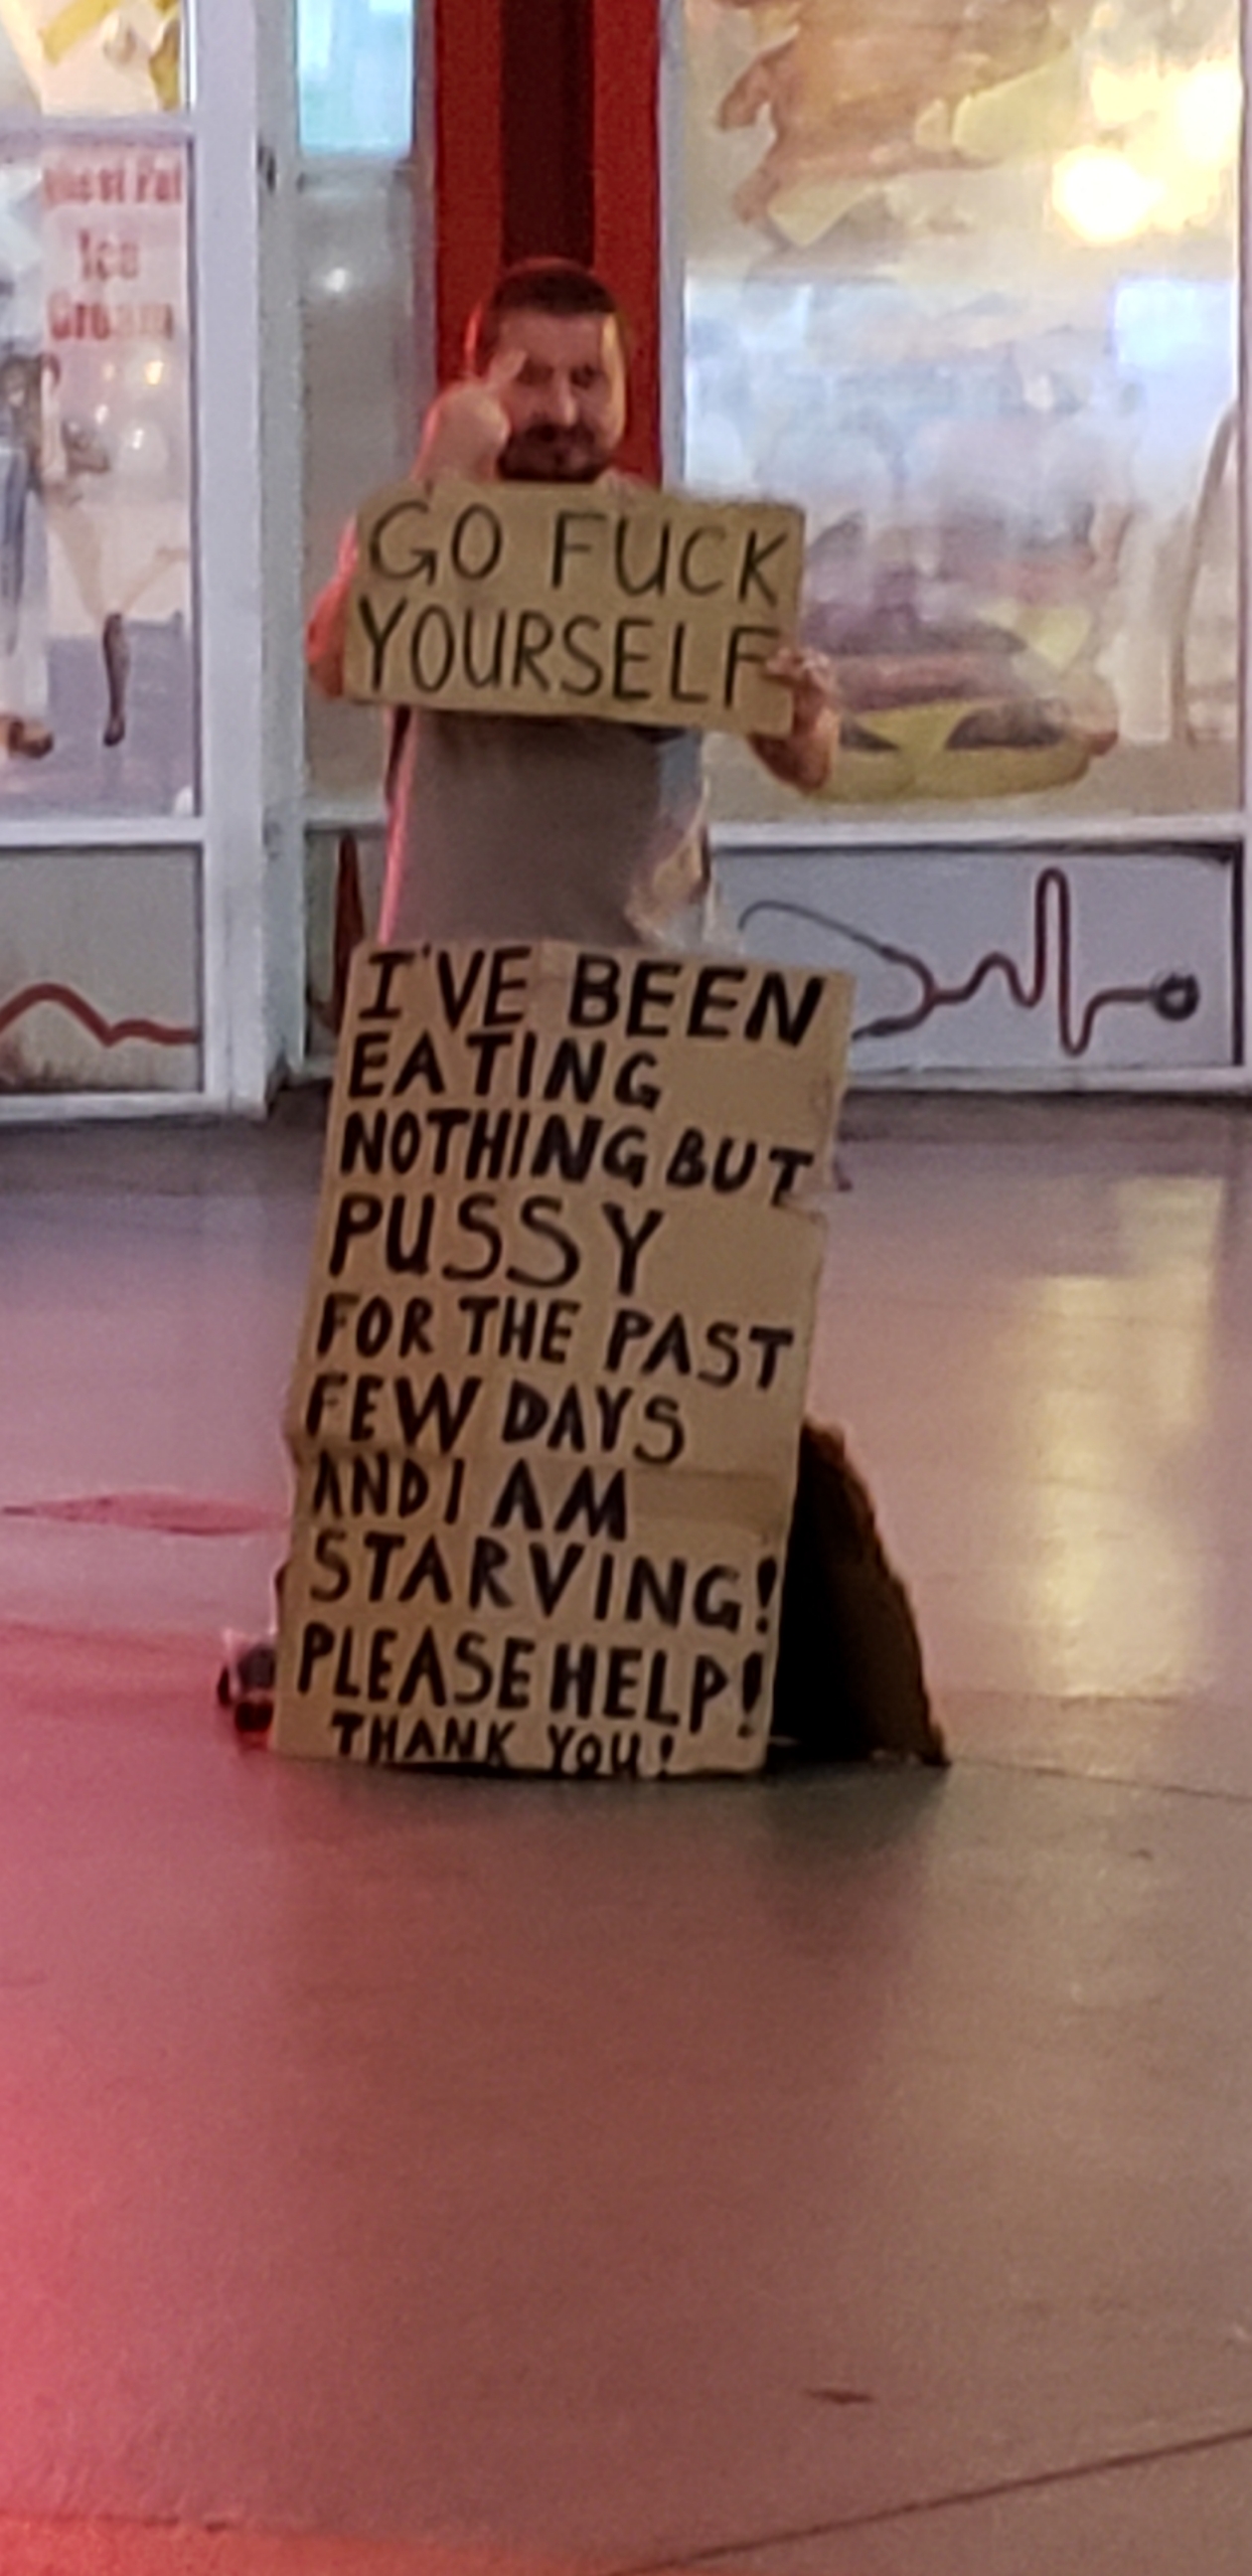 Ice
Cream
GO FUCK
YOURSELF
I'VE BEEN
EATING
NOTHING BUT
PUSSY
FOR THE PAST
FEW DAYS
AND I AM
STARVING!
PLEASE HELP!
THANK YOU!